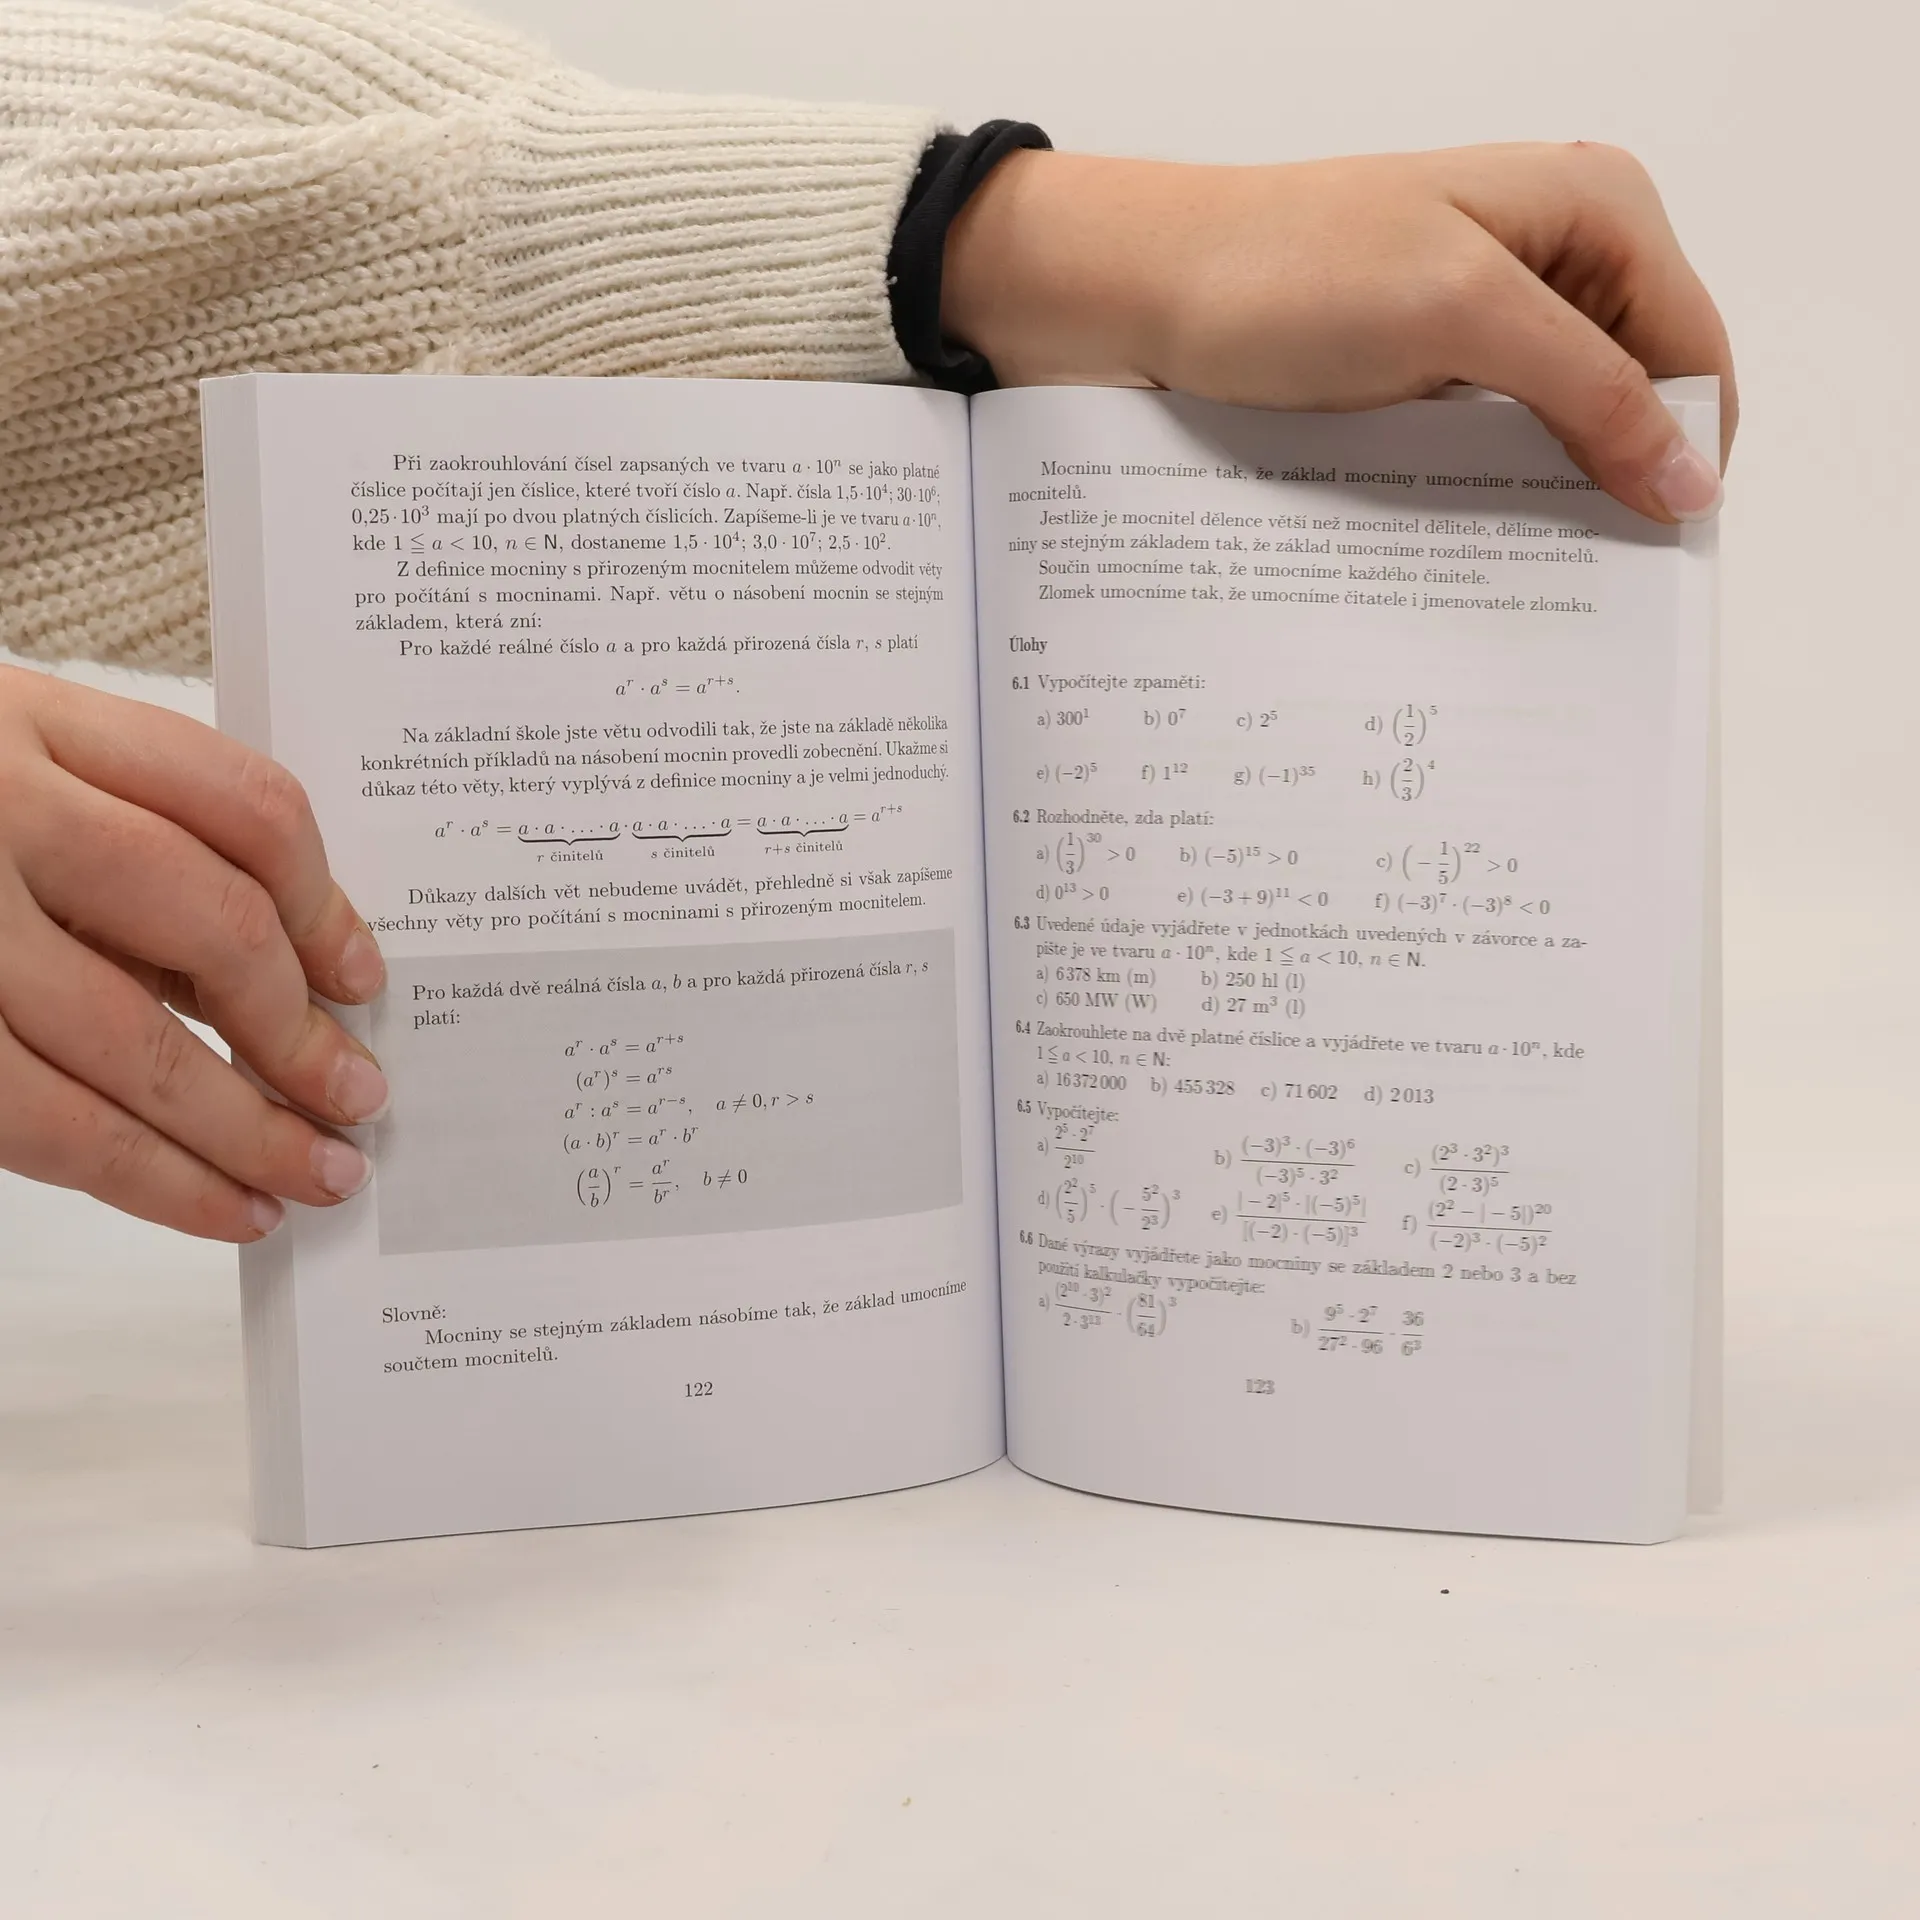 Při zaokrouhlování čísel zapsaných ve tvaru a · 10ⁿ se jako platné
číslice počítají jen číslice, které tvoří číslo a. Např. čísla 1,5·10⁴; 30·10⁶;
0,25·10³ mají po dvou platných číslicích. Zapíšeme-li je ve tvaru a·10ⁿ,
kde 1 ≦ a < 10, n ∈ N, dostaneme 1,5 · 10⁴; 3,0 · 10⁷; 2,5 · 10².
Z definice mocniny s přirozeným mocnitelem můžeme odvodit věty
pro počítání s mocninami. Např. větu o násobení mocnin se stejným
základem, která zní:
Pro každé reálné číslo a a pro každá přirozená čísla r, s platí
aʳ · aˢ = aʳ⁺ˢ.
Na základní škole jste větu odvodili tak, že jste na základě několika
konkrétních příkladů na násobení mocnin provedli zobecnění. Ukažme si
důkaz této věty, který vyplývá z definice mocniny a je velmi jednoduchý.
aʳ · aˢ = a · a · … · a · a · a · … · a = a · a · … · a = aʳ⁺ˢ
r činitelů s činitelů r+s činitelů
Důkazy dalších vět nebudeme uvádět, přehledně si však zapíšeme
všechny věty pro počítání s mocninami s přirozeným mocnitelem.
Pro každá dvě reálná čísla a, b a pro každá přirozená čísla r, s
platí:
aʳ · aˢ = aʳ⁺ˢ
(aʳ)ˢ = aʳˢ
aʳ : aˢ = aʳ⁻ˢ, a ≠ 0, r > s
(a · b)ʳ = aʳ · bʳ
(a/b)ʳ = aʳ/bʳ, b ≠ 0
Slovně:
Mocniny se stejným základem násobíme tak, že základ umocníme
součtem mocnitelů.
122
Mocninu umocníme tak, že základ mocniny umocníme součinem
mocnitelů.
Jestliže je mocnitel dělence větší než mocnitel dělitele, dělíme moc-
niny se stejným základem tak, že základ umocníme rozdílem mocnitelů.
Součin umocníme tak, že umocníme každého činitele.
Zlomek umocníme tak, že umocníme čitatele i jmenovatele zlomku.
Úlohy
6.1 Vypočítejte zpaměti:
a) 300¹ b) 0⁷ c) 2⁵ d) (1/2)⁵
e) (−2)⁵ f) 1¹² g) (−1)³⁵ h) (2/3)⁴
6.2 Rozhodněte, zda platí:
a) (1/3)³⁰ > 0 b) (−5)¹⁵ > 0 c) (−1/5)²² > 0
d) 0¹³ > 0 e) (−3 + 9)¹¹ < 0 f) (−3)⁷ · (−3)⁸ < 0
6.3 Uvedené údaje vyjádřete v jednotkách uvedených v závorce a za-
pište je ve tvaru a · 10ⁿ, kde 1 ≦ a < 10, n ∈ N.
a) 6378 km (m) b) 250 hl (l)
c) 650 MW (W) d) 27 m³ (l)
6.4 Zaokrouhlete na dvě platné číslice a vyjádřete ve tvaru a · 10ⁿ, kde
1 ≦ a < 10, n ∈ N:
a) 16 372 000 b) 455 328 c) 71 602 d) 2 013
6.5 Vypočítejte:
a) (2⁵ · 2⁷)/2¹⁰ b) ((−3)³ · (−3)⁶)/((−3)⁵ · 3²) c) (2³ · 3²)³/(2 · 3)⁵
d) (2²/5)⁵ · (−5²/2³)³ e) (|−2|⁵ · |(−5)⁵|)/[(−2) · (−5)]³ f) (2² − |−5|)²⁰/((−2)³ · (−5)²)
6.6 Dané výrazy vyjádřete jako mocniny se základem 2 nebo 3 a bez
použití kalkulačky vypočítejte:
a) (2¹⁰ · 3)²/(2 · 3¹³) · (81/64)³ b) (9⁵ · 2⁷)/(27² · 96) · 36/6³
123